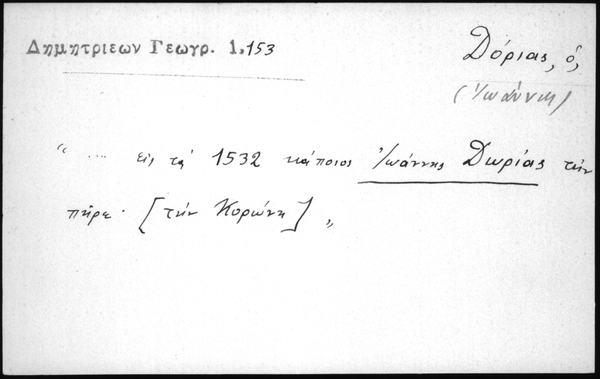 Δημητριεων Γεωγρ. 1.153
Δόριας, ὁ,
(Ἰωάννης)
“ .... εἰς τὰ 1532 κάποιος Ἰωάννης Δωρίας τὴν
πῆρε. [τὴν Κορώνη] „